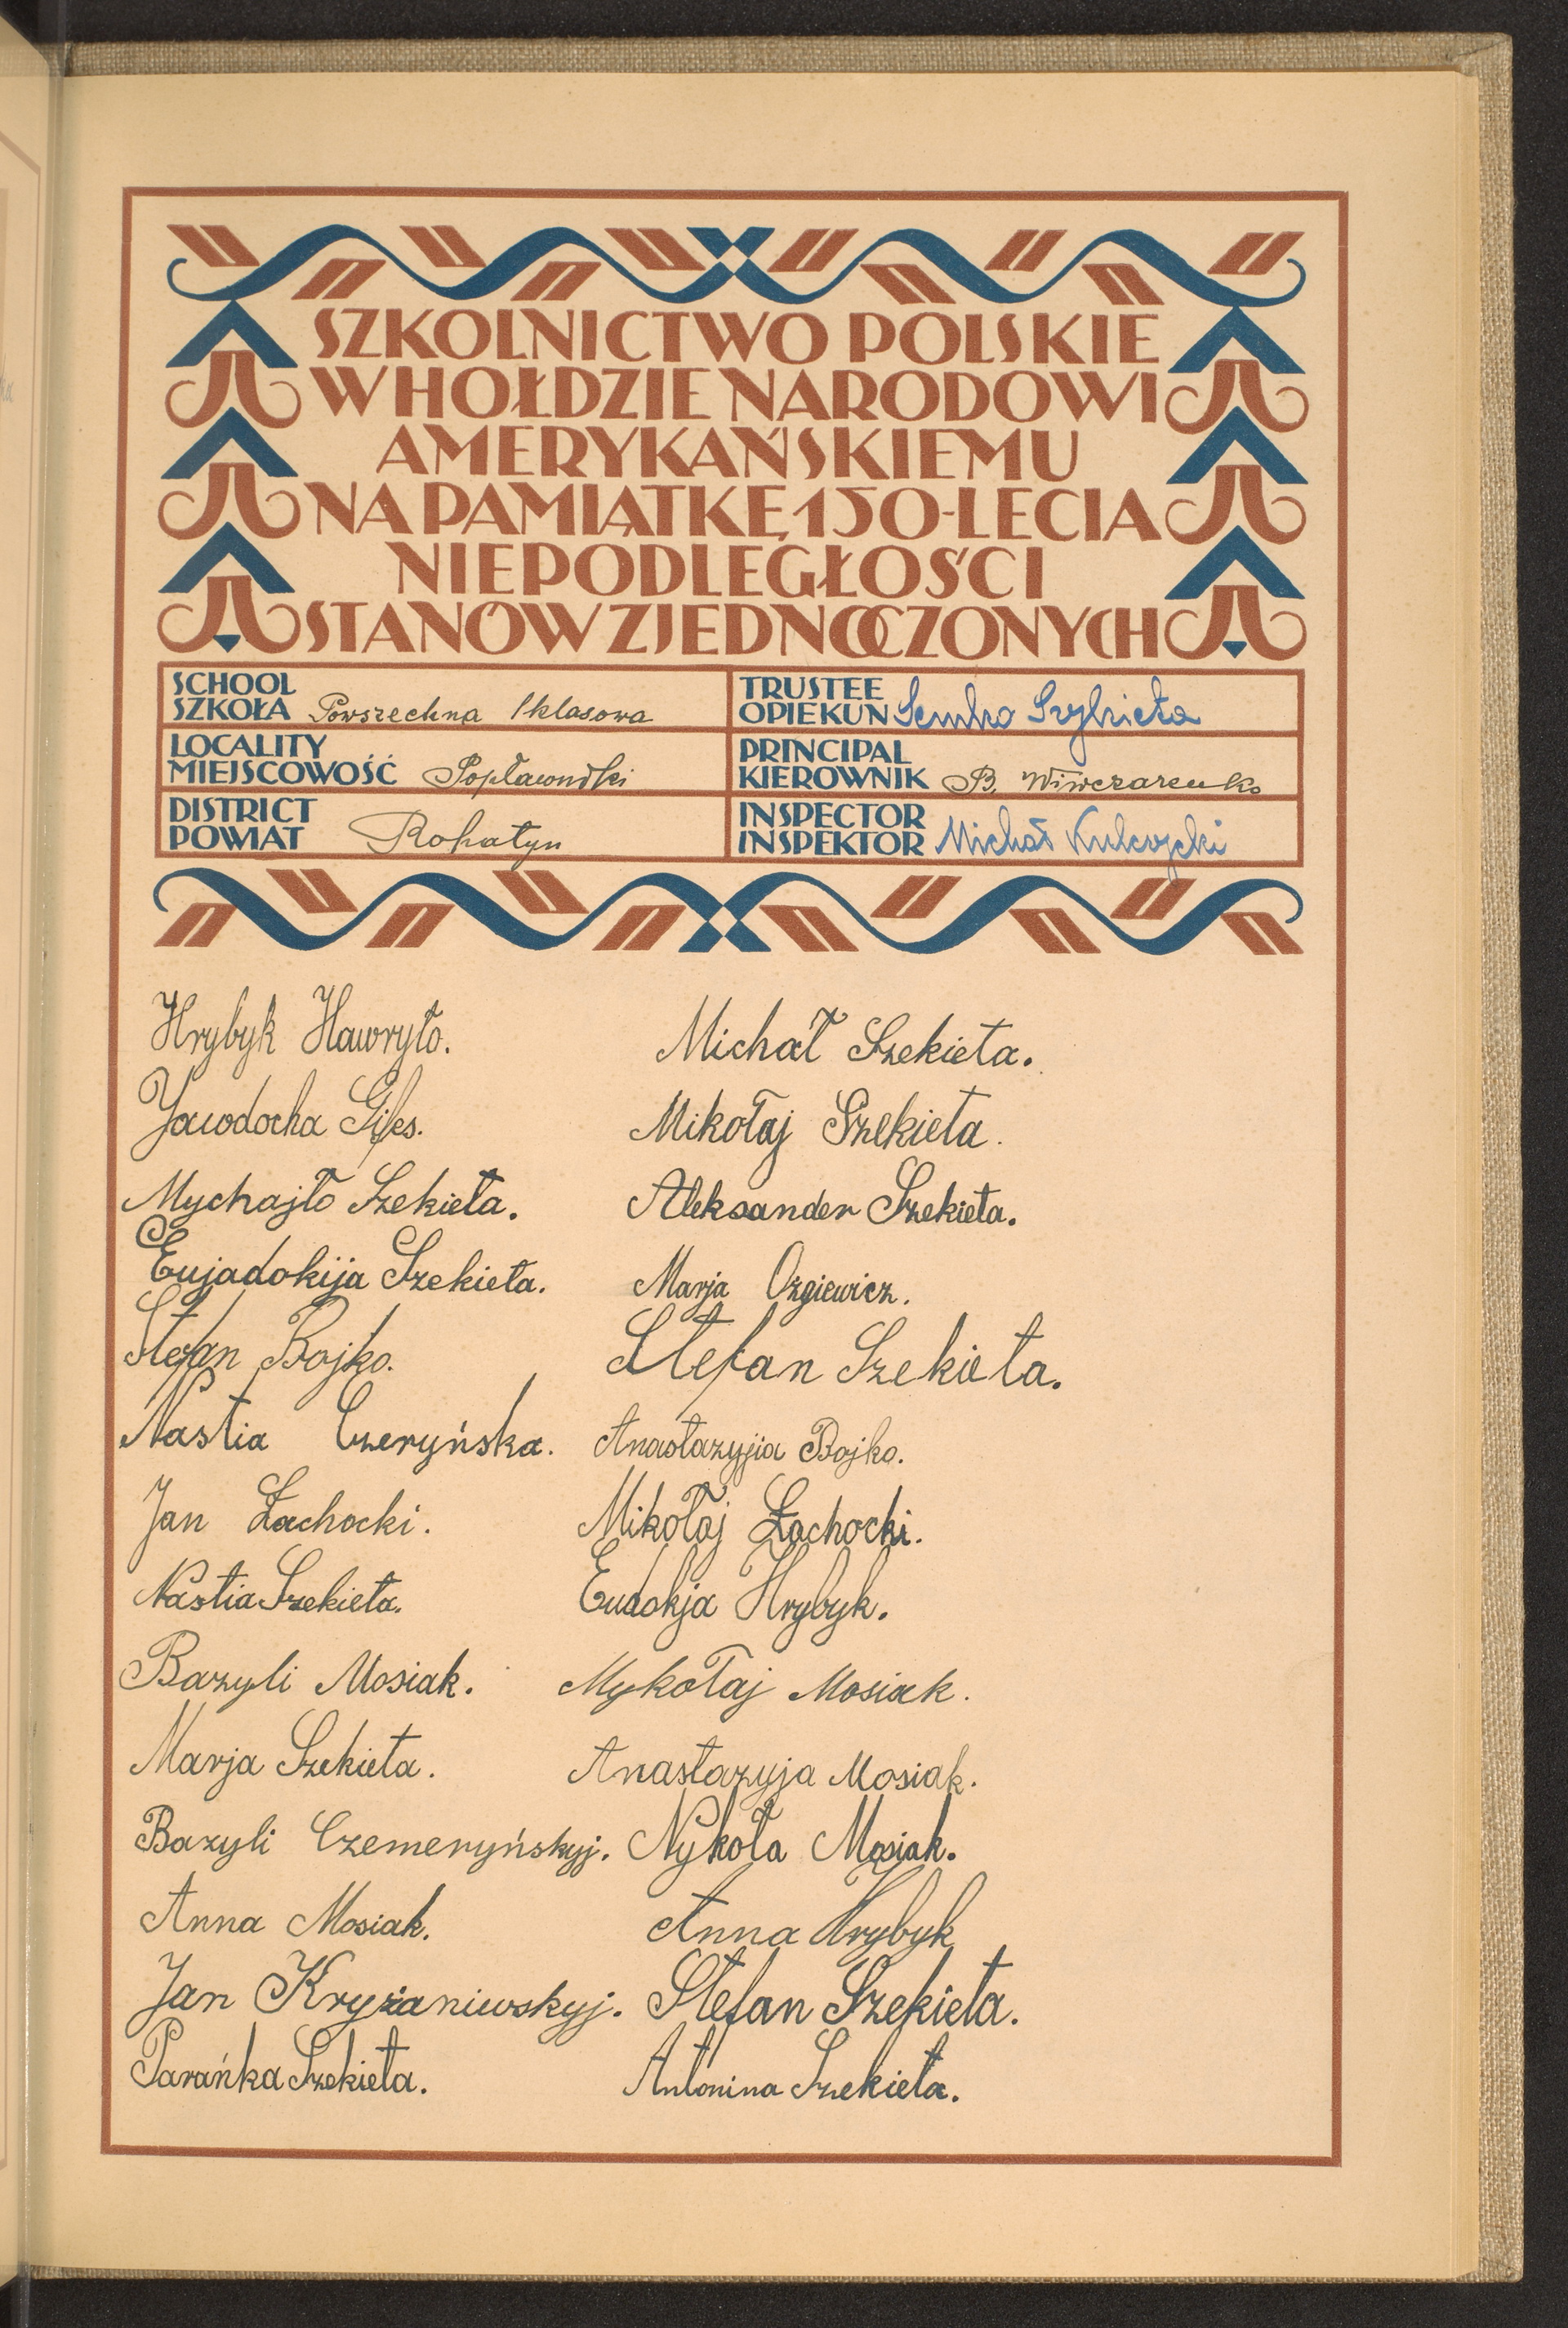 SZKOLNICTWO POLSKIE
W HOŁDZIE NARODOWI
AMERYKAŃSKIEMU
NA PAMIĄTKĘ 150-LECIA
NIEPODLEGŁOŚCI
STANÓW ZJEDNOCZONYCH
SCHOOL
SZKOŁA Powszechna 1 klasowa
LOCALITY
MIEJSCOWOŚĆ
DISTRICT
POWIAT Rohatyn
TRUSTEE
OPIEKUN Semko
PRINCIPAL
KIEROWNIK B. Wiwczarenko
INSPECTOR
INSPEKTOR Michał Kulczycki
Hrybyk Hawryło.
Jawdocha
Mychajło Szekieta.
Eujadokija Szekieta.
Stefan Bojko.
Nastia Czeryńska.
Jan Łachocki.
Nastia Szekieta.
Bazyli Mosiak.
Marja Szekieta.
Bazyli Czemeryńskyj.
Anna Mosiak.
Jan Kryżaniwskyj.
Parańka Szekieta.
Michał Szekieta.
Mikołaj Szekieta.
Aleksander Szekieta.
Marja Ozgiewicz.
Stefan Szekieta.
Anastazyjia Bojko.
Mikołaj Łachocki.
Eudokja Hrybyk.
Mykołaj Mosiak.
Anastazyja Mosiak.
Nykoła Mosiak.
Anna Hrybyk
Stefan Szekieta.
Antonina Szekieta.